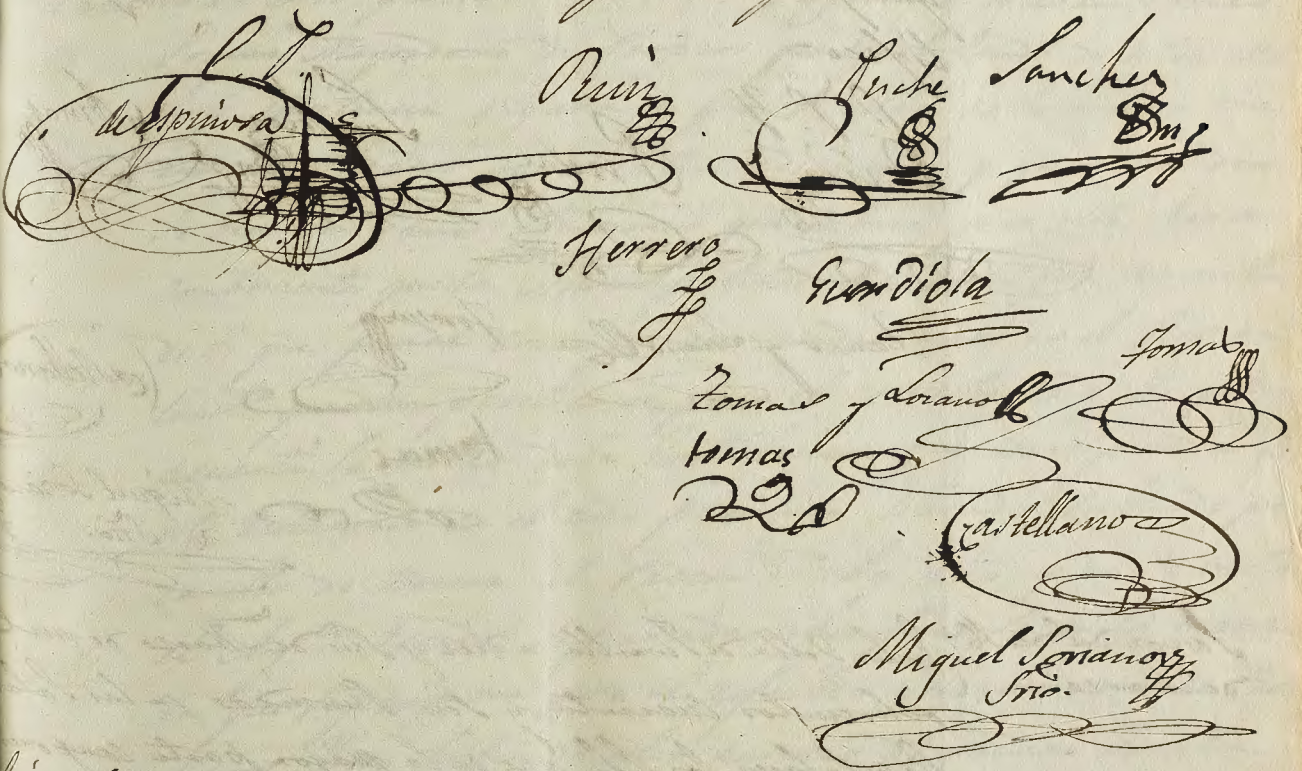 de Espinosa
Ruiz
Puche
Sanchez
Herrero
Guardiola
Tomas
Tomas y Lozano
tomas
Castellanos
Miguel Soriano
Srio.